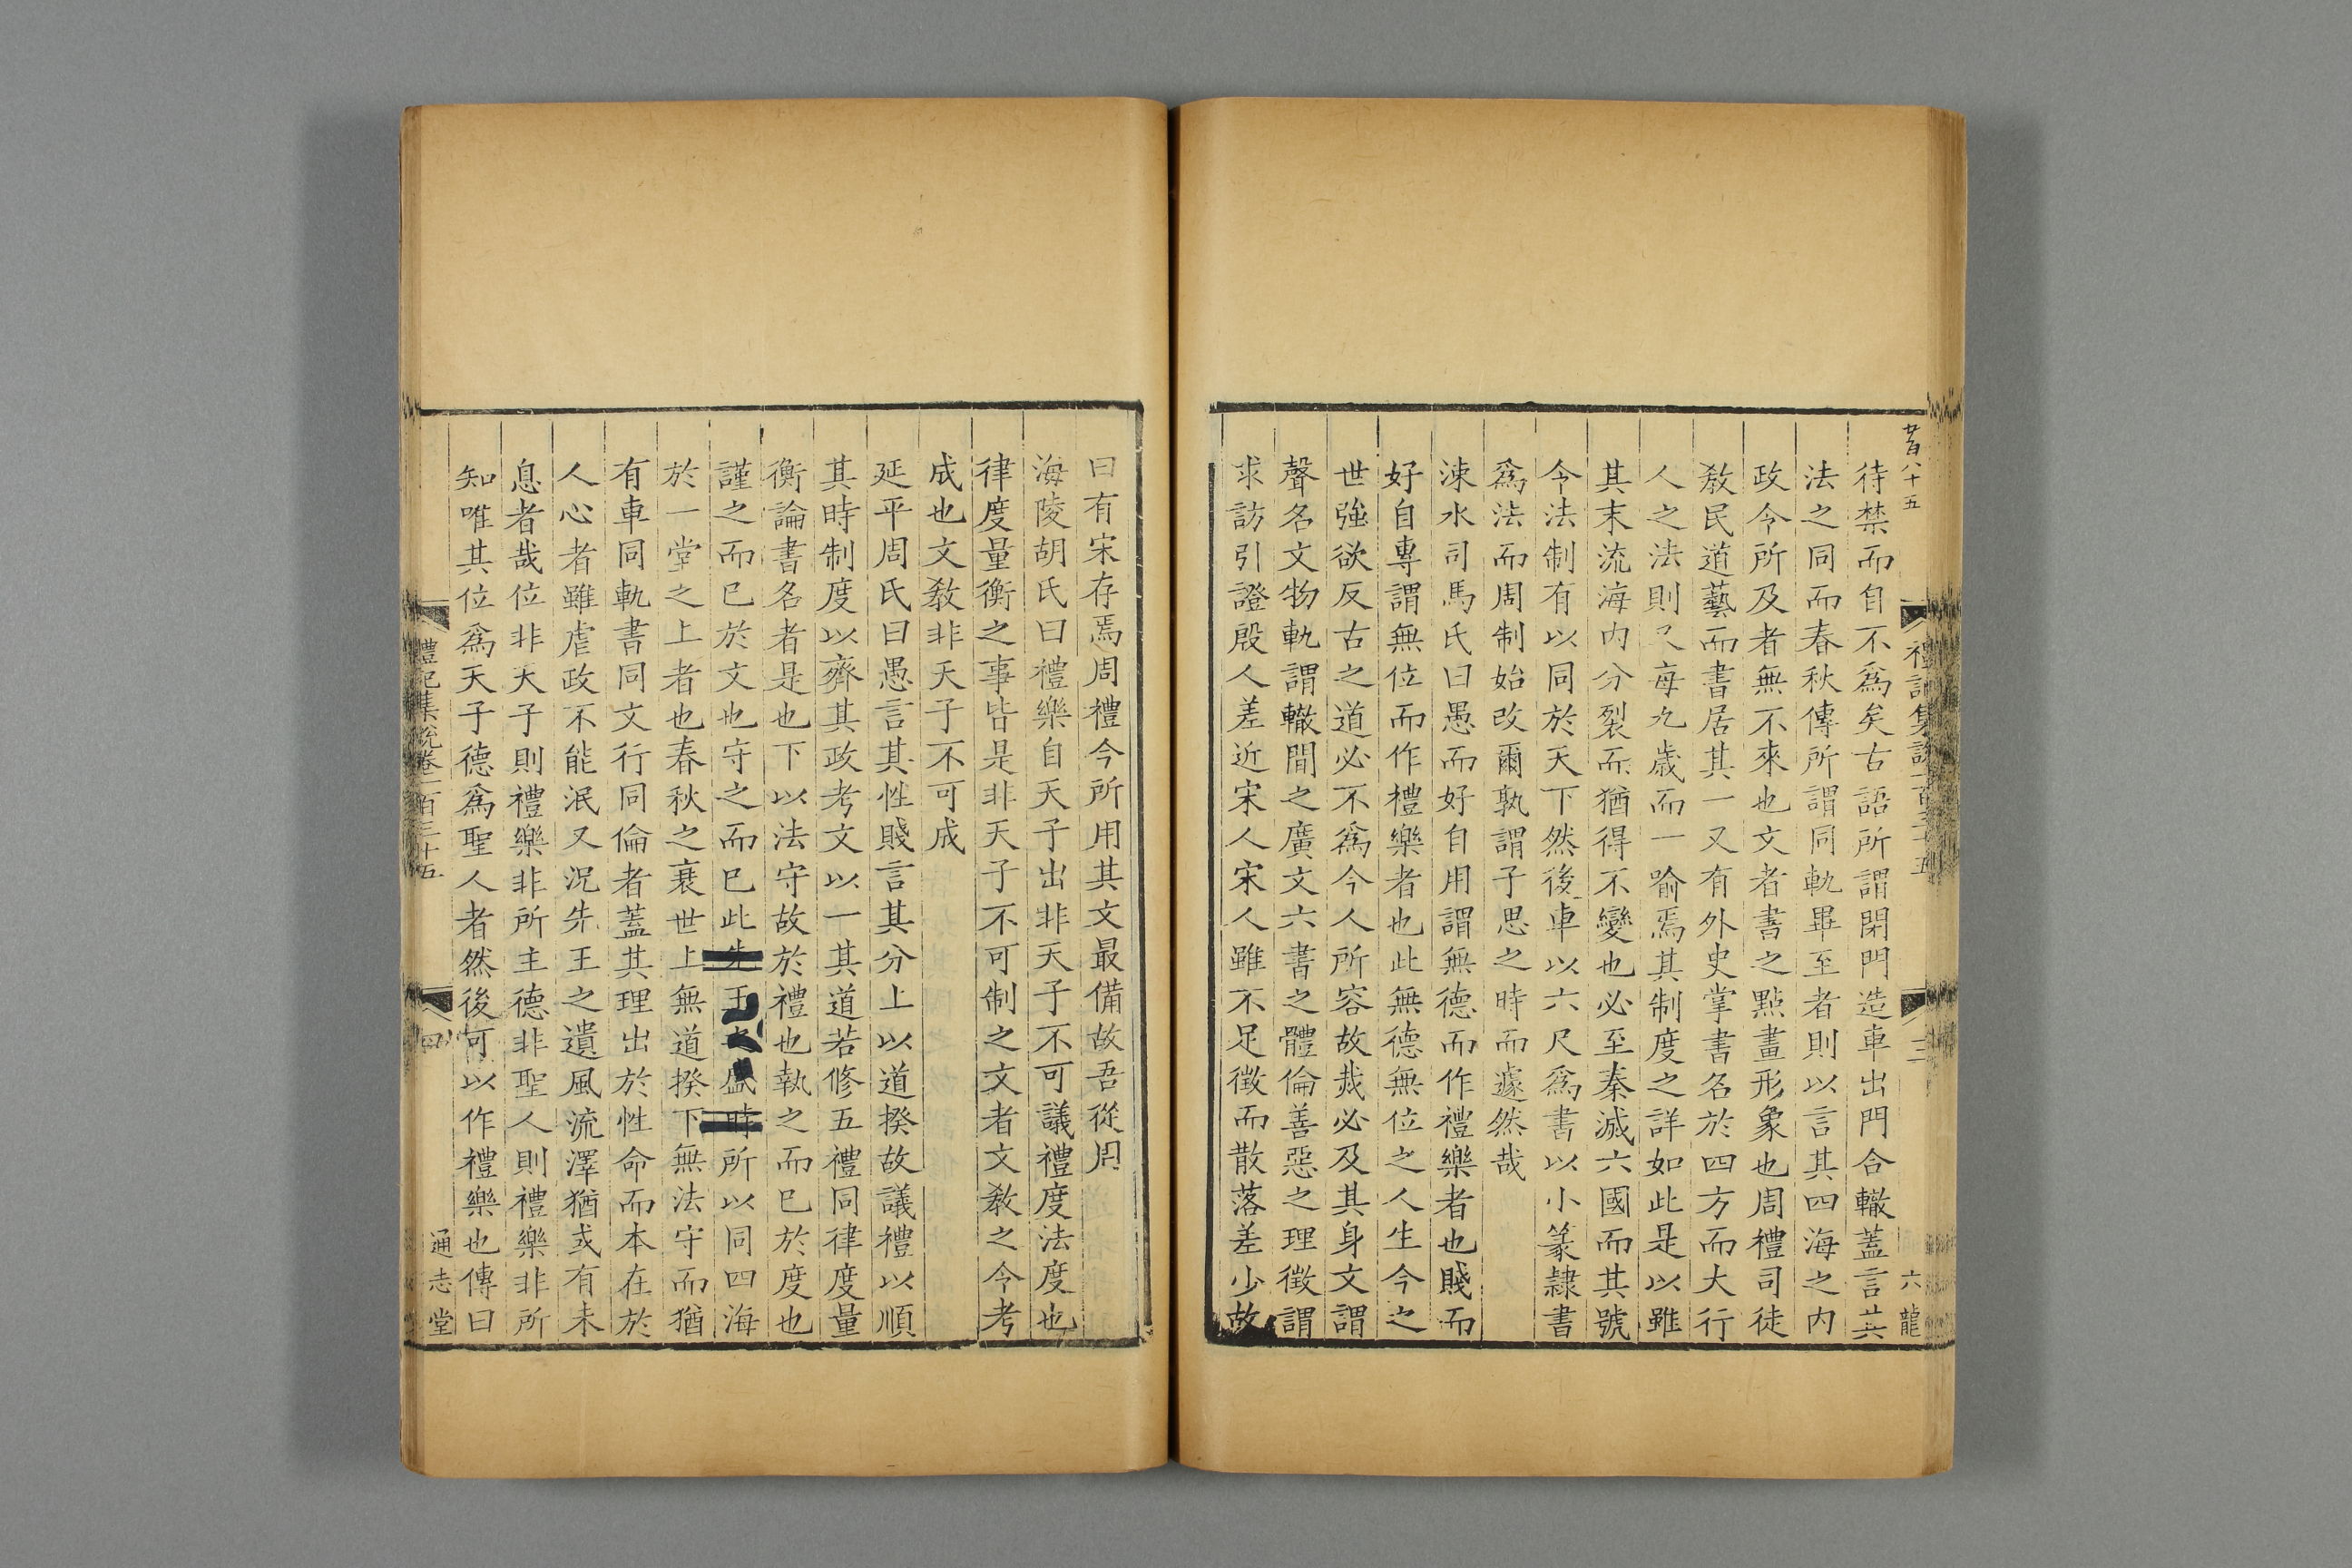 昔八十五
禮記集說卷一百三十五
三
六龍
待禁而自不爲矣古語所謂閉門造車出門合轍蓋言其
法之同而春秋傳所謂同軌畢至者則以言其四海之内
政令所及者無不來也文者書之點畫形象也周禮司徒
敎民道藝而書居其一又有外史掌書名於四方而大行
人之法則又每九歲而一喻焉其制度之詳如此是以雖
其末流海内分裂而猶得不變也必至秦滅六國而其號
令法制有以同於天下然後車以六尺爲書以小篆隸書
爲法而周制始改爾孰謂子思之時而遽然哉
涑水司馬氏曰愚而好自用謂無德而作禮樂者也賤而
好自專謂無位而作禮樂者也此無德無位之人生今之
世強欲反古之道必不爲今人所容故烖必及其身文謂
聲名文物軌謂轍間之廣文六書之體倫善惡之理徵謂
求訪引證殷人差近宋人宋人雖不足徵而散落差少故
曰有宋存焉周禮今所用其文最備故吾從周
海陵胡氏曰禮樂自天子出非天子不可議禮度法度也
律度量衡之事皆是非天子不可制之文者文敎之今考
成也文敎非天子不可成
延平周氏曰愚言其性賤言其分上以道揆故議禮以順
其時制度以齊其政考文以一其道若修五禮同律度量
衡論書名者是也下以法守故於禮也執之而已於度也
謹之而已於文也守之而已此先王之盛時所以同四海
於一堂之上者也春秋之衰世上無道揆下無法守而猶
有車同軌書同文行同倫者蓋其理出於性命而本在於
人心者雖虐政不能泯又況先王之遺風流澤猶或有未
息者哉位非天子則禮樂非所主德非聖人則禮樂非所
知唯其位爲天子德爲聖人者然後可以作禮樂也傳曰
禮記集說卷一百三十五
四
通志堂